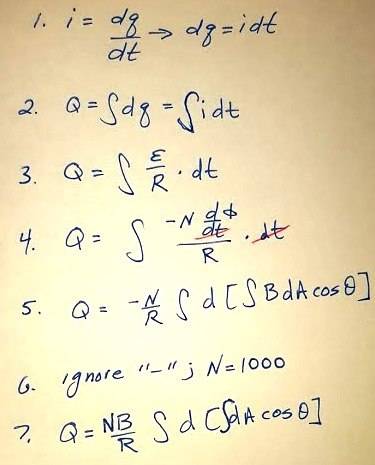 1. i = dq/dt → dq = idt
2. Q = ∫dq = ∫idt
3. Q = ∫ ε/R · dt
4. Q = ∫ -N dφ/dt / R · dt
5. Q = -N/R ∫ d [∫ B dA cos θ]
6. ignore "-" ; N = 1000
7. Q = NB/R ∫ d [∫dA cos θ]